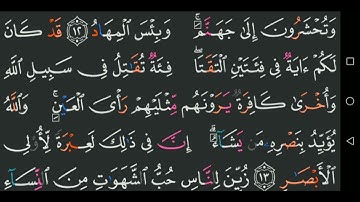 وَتُحْشَرُونَ إِلَىٰ جَهَنَّمَ ۚ وَبِئْسَ ٱلْمِهَادُ ١٢ قَدْ كَانَ
لَكُمْ ءَايَةٌ فِى فِئَتَيْنِ ٱلْتَقَتَا ۖ فِئَةٌ تُقَٰتِلُ فِى سَبِيلِ ٱللَّهِ
وَأُخْرَىٰ كَافِرَةٌ يَرَوْنَهُم مِّثْلَيْهِمْ رَأْىَ ٱلْعَيْنِ ۚ وَٱللَّهُ
يُؤَيِّدُ بِنَصْرِهِۦ مَن يَشَآءُ ۗ إِنَّ فِى ذَٰلِكَ لَعِبْرَةً لِّأُو۟لِى
ٱلْأَبْصَٰرِ ١٣ زُيِّنَ لِلنَّاسِ حُبُّ ٱلشَّهَوَٰتِ مِنَ ٱلنِّسَآءِ